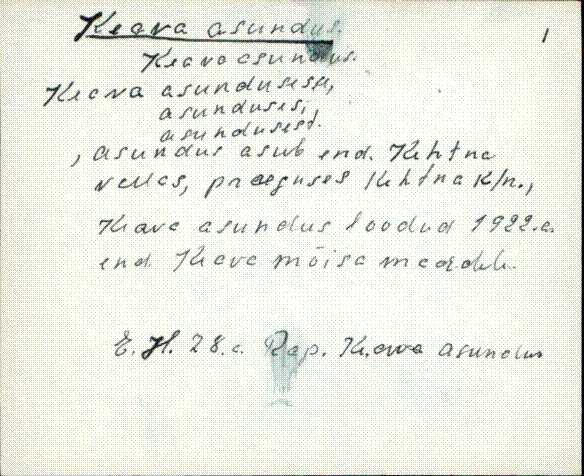 Keava asundus. 1
Keava asundus.
Keava asundusesse,
asunduses,
asundusest.
, asundus asub end. Kehtna
vallas, praeguses Kehtna k/n.,
Keava asundus loodud 1922.a.
end. Keava mõisa maadele.
E. H. 28.a. Rap. Keava asundus